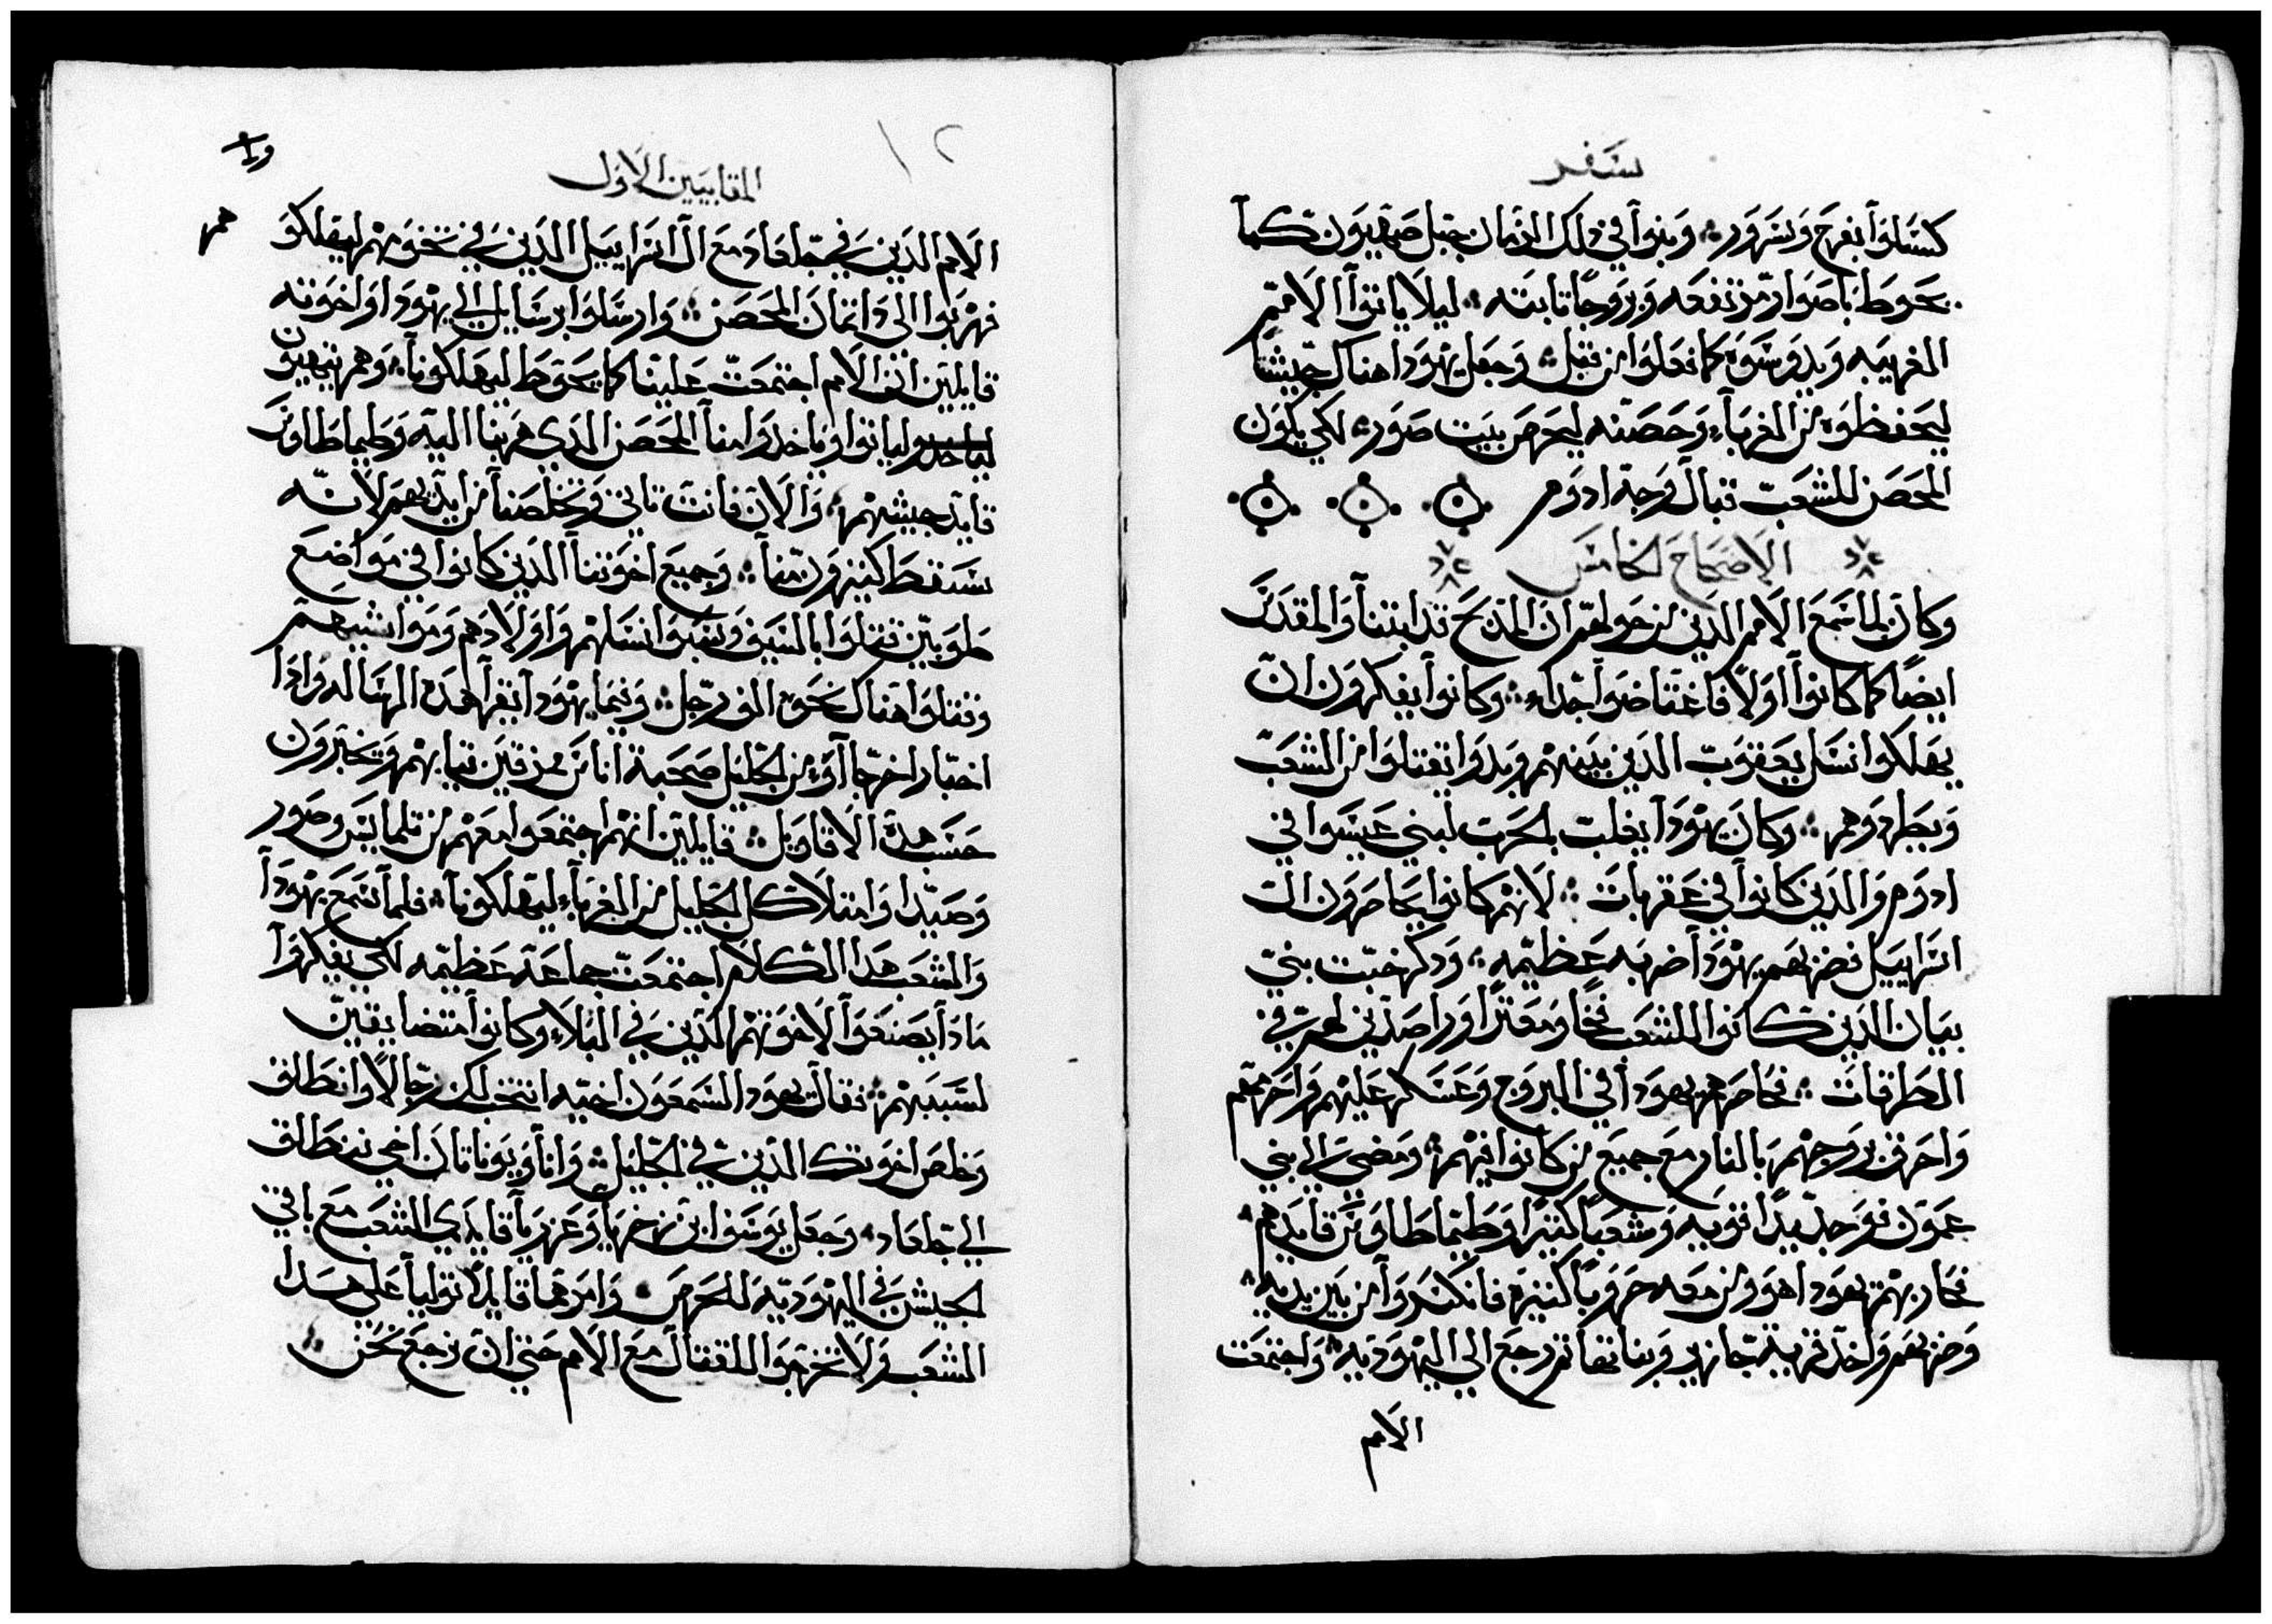 سفر
كسلوا بفرح وسرور؞ وبنوا في ذلك الزمان جبل صهيون كما
يحوط باصوار مرتفعه وبروجًا تابته؞ ليلا ياتوا الامم
الغريبه ويدوسوه كما فعلوا من قبل؞ وجعل يهودا هناك جيشًا
ليحفظوه من الغرباء وحصنه ليحرص بيت صور؞ لكي يكون
المحصن للشعب قبال وجه ادوم
الاصحاح الخامس
وكان لما سمع الامم الدين من حولهم ان المدبح قد ابتنا والمقدس
ايضًا كما كانوا اولًا فاغتاضوا جدًا؞ وكانوا يفكرون ان
يهلكوا نسل يعقوب الدين بينهم وبدوا يقتلوا من الشعب
ويطردوهم؞ وكان يهودا يغلب بالحرب لبني عيسوا في
ادوم والدين كانوا في عقربات؞ لانهم كانوا يحاصرون ال
اسراييل فضربهم يهودا ضربه عظيمه؞ ودكر خبت بني
بيان الدين كانوا للشعب فخًا ومعترًا وراصدين لهم في
الطرقات؞ فحاصرهم يهودا في البروج وعسكر عليهم واحرمهم
واحرق بروجهم بالنار مع جميع من كانوا فيهم؞ ومضى الي بني
عمون فوجد يدًا قويه وشعبًا كتيرًا وطيماطاوس قايدهم؞
فحاربهم يهودا هو ومن معه حروبًا كتيره فانكسروا من بين يديه؞
وضربهم واخد قرية جازير وبناتها تم رجع الي اليهوديه؞ واجتمعت
الامم
المقابيين الاول
الامم الدين في جلعاد مع ال اسراييل الدين في تخومهم ليهلكو
هم
فهربوا الى داتمان المحصن؞ وارسلوا برسايل الي يهودا واخوته
قايلين ان الامم اجتمعت علينا كما يحوط ليهلكونا؞ وهم يتهيون
لياخدو لياتوا وياخدوا منا المحصن الدي هربنا اليه وطيماطاوس
قايد جيشهم؞ والان فانت تاتي وتخلصنا من ايديهم لانه
سقط كتيرون منا؞ وجميع اخوتنا الدين كانوا في مواضع
طوبين قتلوا بالسيف وسبوا نساهم واولادهم ومواشيهم
وقتلوا هناك نحو الف رجل؞ وفيما يهودا يقرا هده الرساله وادا
اخبار اخر جاوا من الجليل صحبة اناس ممزقين تيابهم ويخبرون
حسب هده الاقاويل؞ قايلين انهم اجتمعوا معهم من تلمايس وصور
وصيدا وامتلا كل الجليل من الغرباء ليهلكونا؞ فلما سمع يهودا
والشعب هدا الكلام اجتمعت جماعه عظيمه لكي يفكروا
مادا يصنعوا لاخوتهم الدين في البلاء وكانوا متضايقين
لسببهم؞ فقال يهودا لشمعون اخيه انتخب لك رجالًا وانطلق
وخلص اخوتك الدين في الجليل؞ وانا ويوناتان اخي ننطلق
الي جلعاد؞ وجعل يوسف ابن زخريا وعزريا قايدي الشعب مع باقي
الجيش في اليهوديه للحرص؞ وامرهما قايلًا توليا على هدا
الشعب ولا تخرجوا للقتال مع الامم حتى ان نرجع نحن